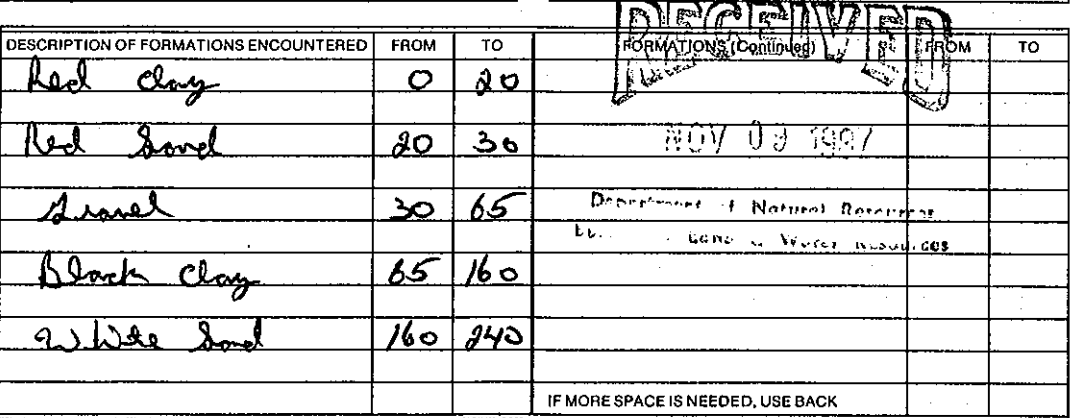 RECEIVED
DESCRIPTION OF FORMATIONS ENCOUNTERED FROM TO FORMATIONS (Continued) FROM TO
Red Clay 0 20
Red Sand 20 30
NOV 09 1987
Gravel 30 65
Department of Natural Resources
Land & Water Resources
Black Clay 65 160
White Sand 160 240
IF MORE SPACE IS NEEDED, USE BACK